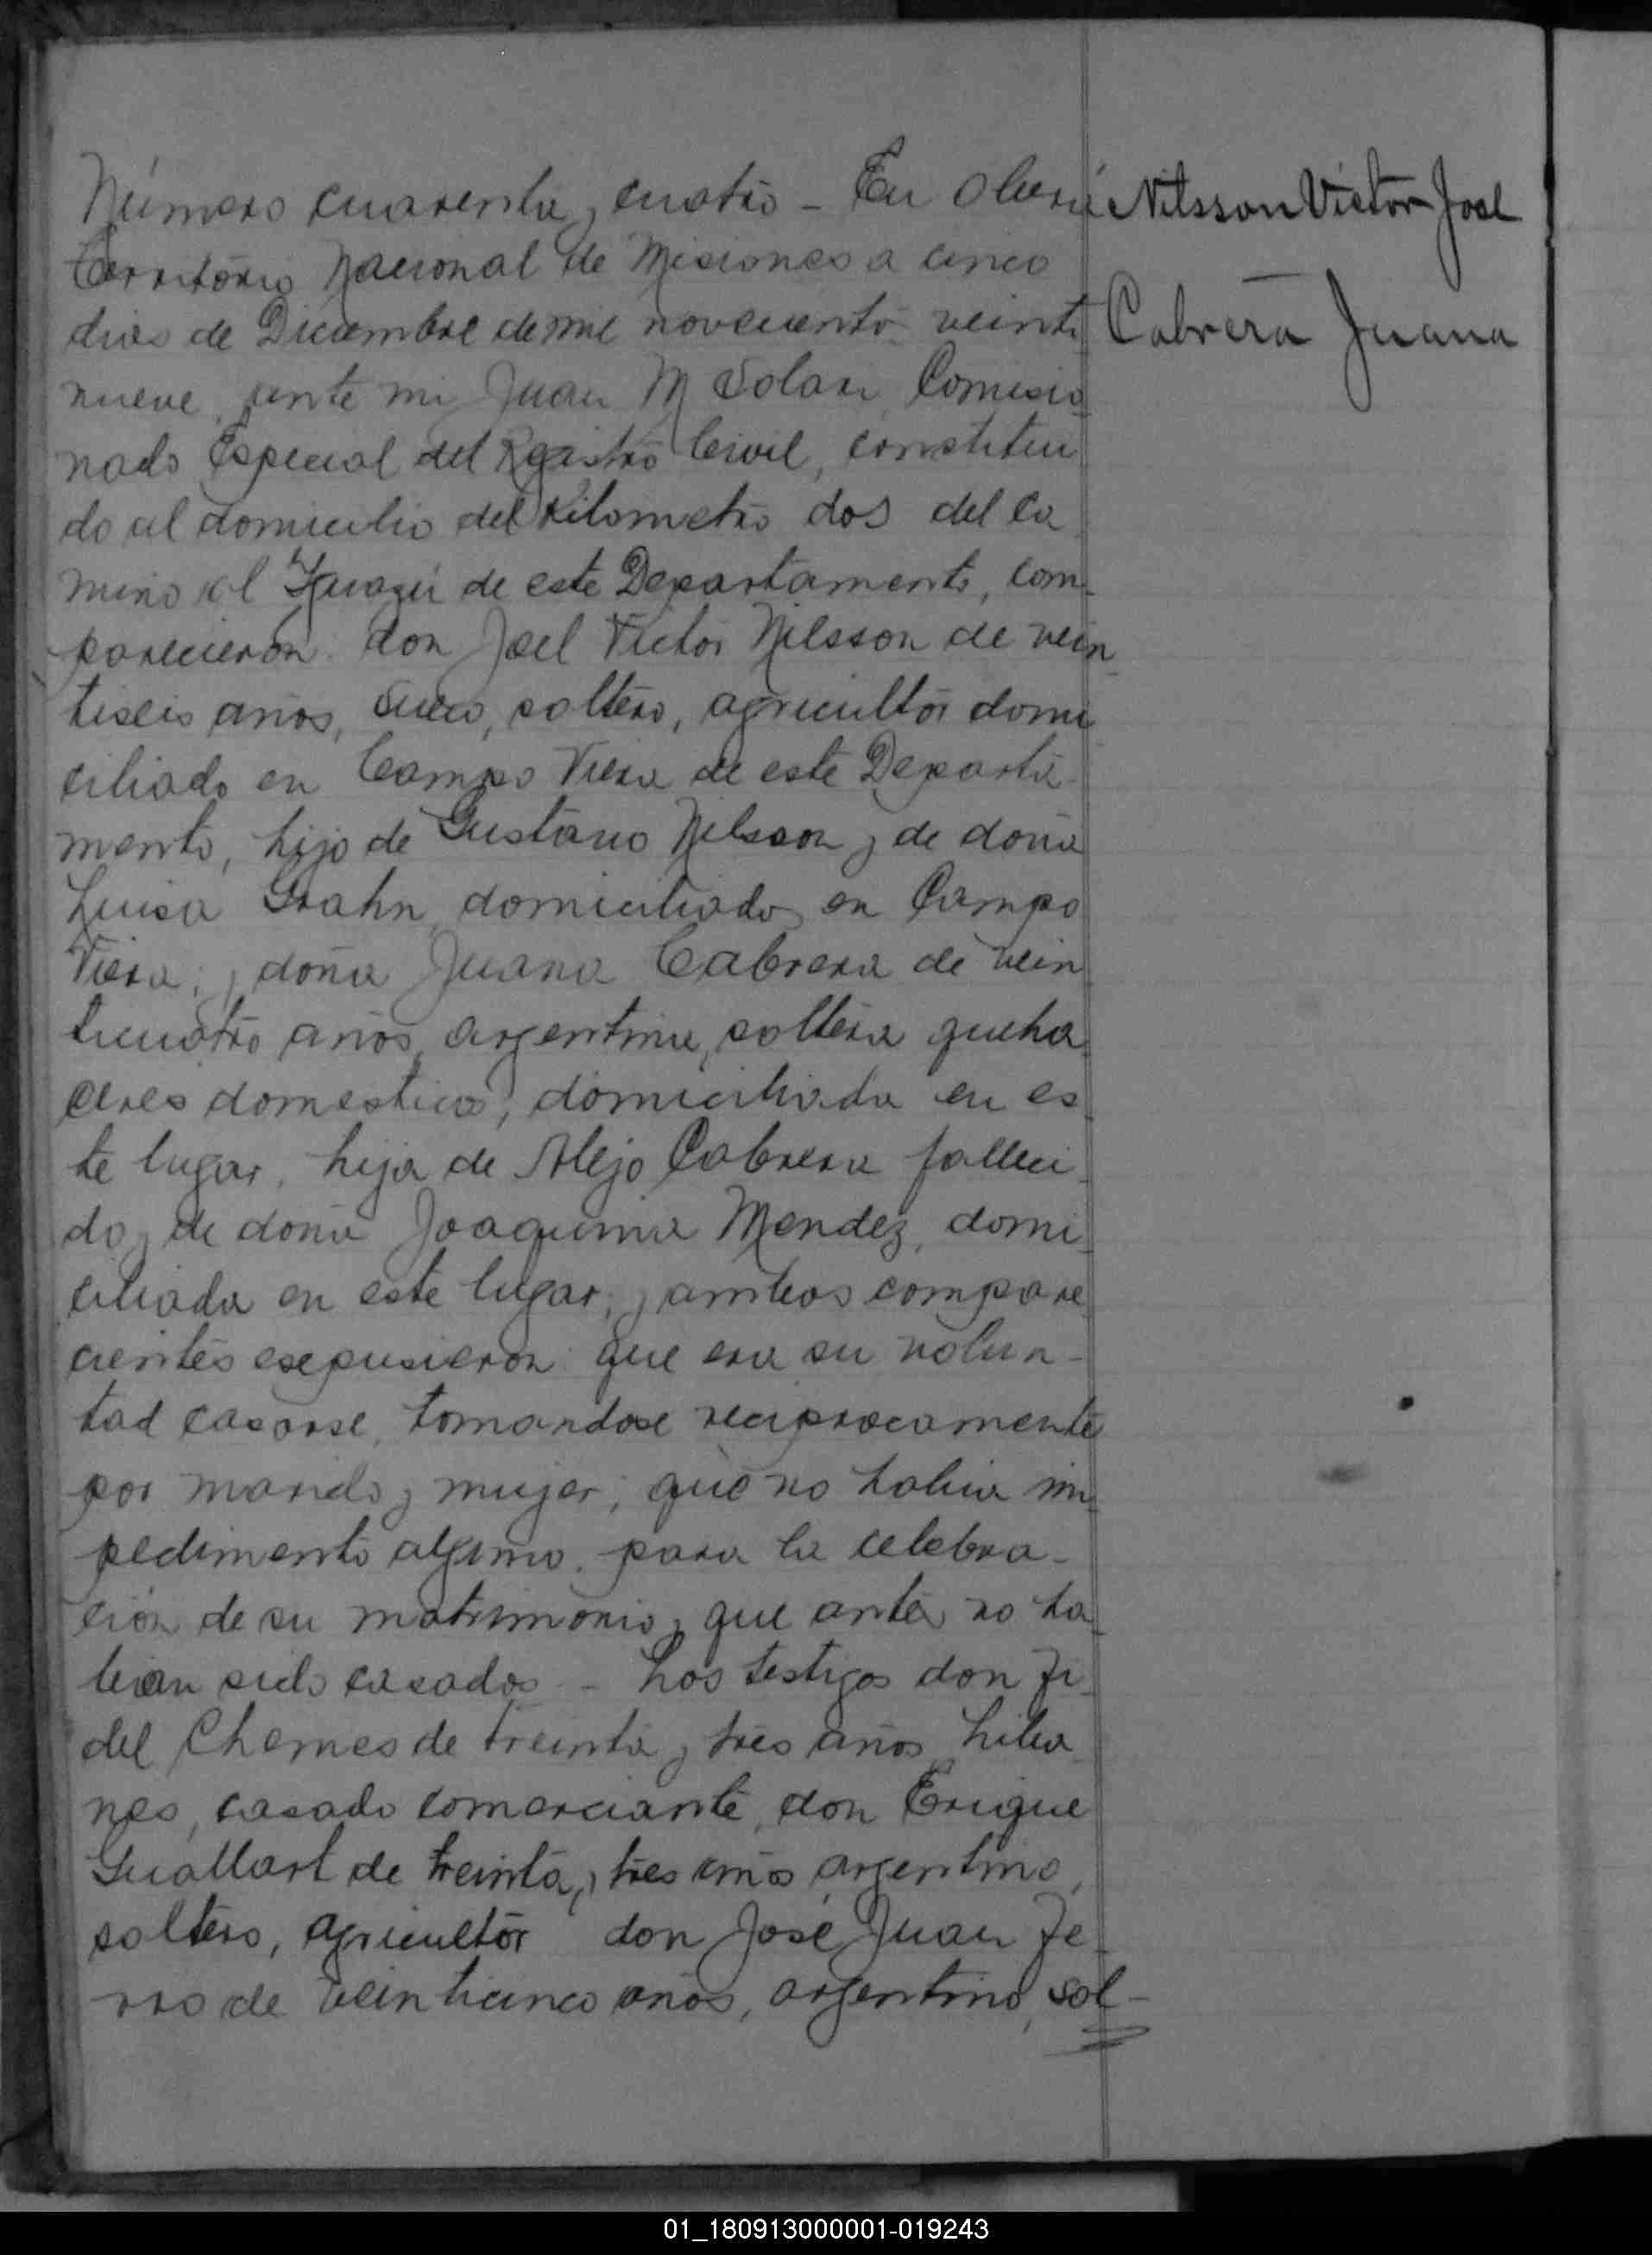 Número cuarenta y cuatro - En Oberá
Territorio Nacional de Misiones a cinco
dias de Diciembre de mil novecientos veinti
nueve, ante mi Juan M Solari, Comisio_
nado Especial del Registro Civil, constitui
do al domicilio del Kilometro dos del ca
mino al Yguazú de este Departamento, com_
parecieron: don Joel Victor Nilsson de vein_
tiseis años, sueco, soltero, agricultor domi
ciliado en Campo Viera de este Departa-
mento, hijo de Gustavo Nilsson y de doña
Luisa Grahn domiciliados en Campo
Viera; y doña Juana Cabrera de vein
ticuatro años, argentina, soltera queha_
ceres domesticos, domiciliada en es_
te lugar, hija de Alejo Cabrera falleci_
do y de doña Joaquina Mendez, domi_
ciliada en este lugar; y ambos compare
cientes esepusieron: que era su volun-
tad casarse, tomandose reciprocamente
por marido y mujer; que no habia im_
pedimento alguno para la celebra-
ción de su matrimonio y que antes no ha_
bian sido casados. - Los testigos don Fi_
del Chemes de treinta y tres años, liba
nes, casado comerciante, don Erique
Guallart de treinta y tres años argentino,
soltero, agricultor don José Juan Fe_
rro de veinticinco años, argentino, sol-
Nilsson Victor Joel
Cabrera Juana
01_180913000001-019243